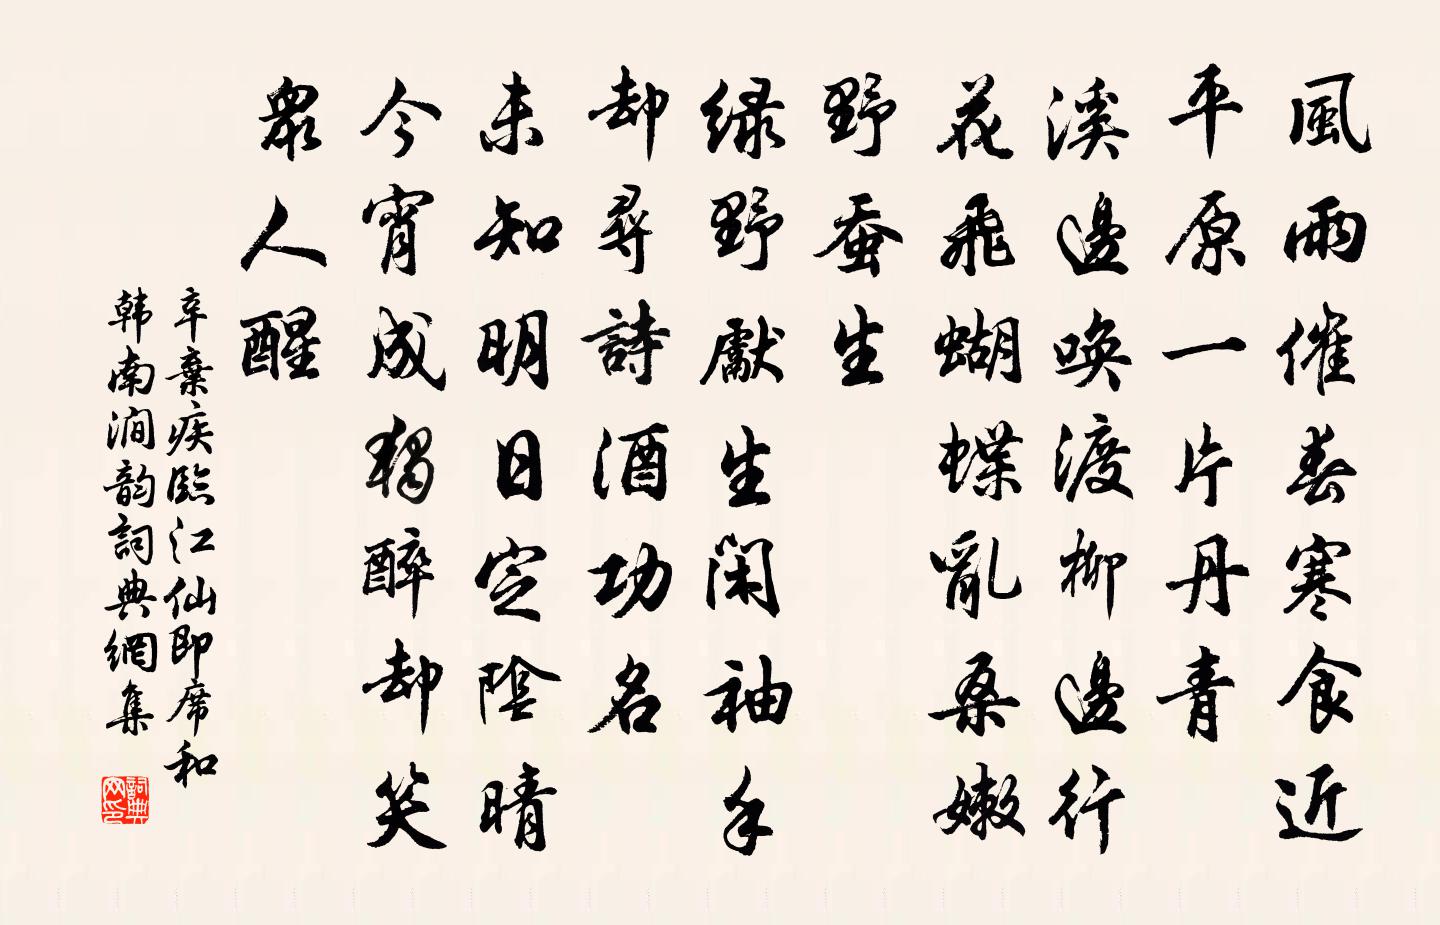 風雨催春寒食近
平原一片丹青
溪邊喚渡柳邊行
花飛蝴蝶亂桑嫩
野蚕生
绿野先生閑袖手
却尋詩酒功名
未知明日定陰晴
今宵成獨醉却笑
衆人醒
辛棄疾臨江仙即席和
韩南澗韵詞典網集
詞典
网印